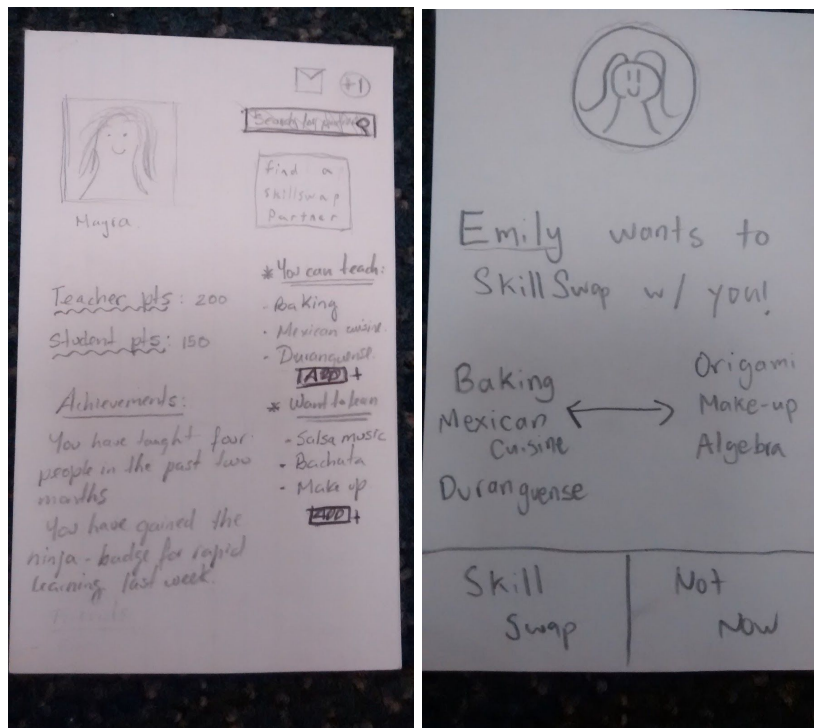 +1
Search for
find a
skillswap
Partner
Mayra
Teacher pts: 200
Student pts: 150
Achievements:
You have taught four
people in the past two
months
You have gained the
ninja-badge for rapid
learning last week.
* You can teach:
- Baking
- Mexican cuisine
- Duranguense
ADD +
* Want to lean
- Salsa music
- Bachata
- Make up
ADD +
Emily wants to
SkillSwap w/ you!
Baking
Mexican
Cuisine
Duranguense
Origami
Make-up
Algebra
Skill
Swap
Not
Now